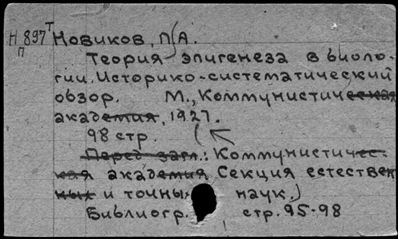 Н 897 Т Новиков, П.А.
П Теория эпигенеза в биоло-
гии. Историко-систематический
обзор. М., Коммунистическая
академия, 1927.
98 стр.
Перед загл.: Коммунистичес-
кая академия Секция естествен
ных и точных наук.)
Библиогр. стр. 95-98